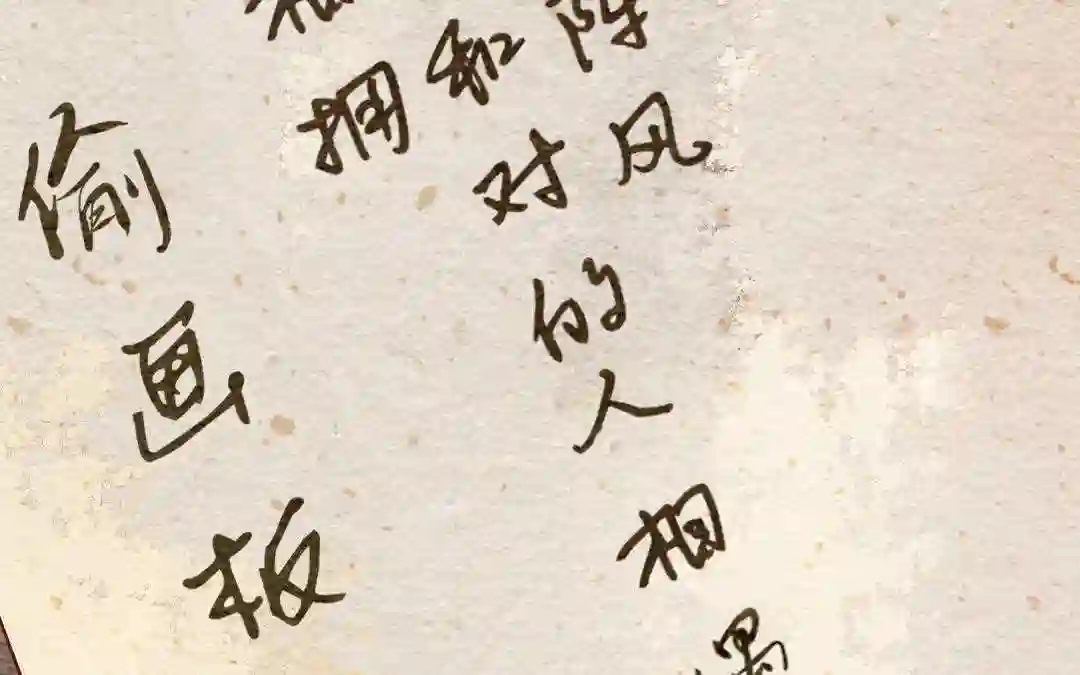 阵风
和对的人相遇
相拥
偷画板